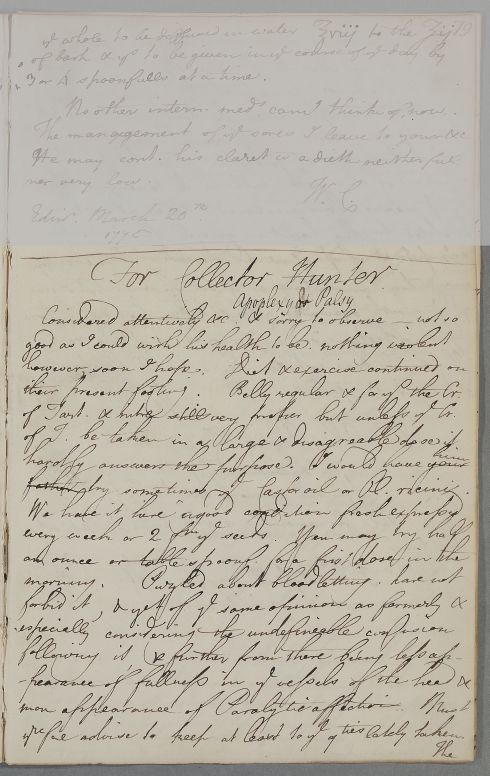 ye whole to be diffused in water ʒviij to the ʒij
of bark & ys to be given in ye course of ye day by
3 or 4 spoonfulls at a time.
No other intern. meds can I think of now.
The management of ye sores I leave to you &c
He may cont. his claret & a dieth neither full
nor very low.
W. C.
Edinr. March 20th
1775
19
For Collector Hunter
Apoplexy or Palsy
Considered attentively &c & sorry to observe — not so
good as I could wish his health to be. nothing violent
however soon I hope. Diet & exercise continued on
their present footing. Belly regular & for ys the Cr.
of Tart. & nutmeg still very proper but unless ye Cr.
of T. be taken in a large & disagreeable dose it
hardly answers the purpose. I would have him
try sometimes ye Castor oil or Ol. ricini.
We have it here in good condition fresh expressed
every week or 2 from ye seeds. You may try half
an ounce or table spoonf. for a first dose in the
morning. Puzzled about bloodletting. dare not
forbid it, & yet of ye same opinion as formerly &
especially considering the undefineable confusion
following it, & further from there being less ap-
pearance of fullness in ye vessels of the head &
more appearance of Paralytic affection. Must
yrfre advise to keep at least to ye qties lately taken.
The